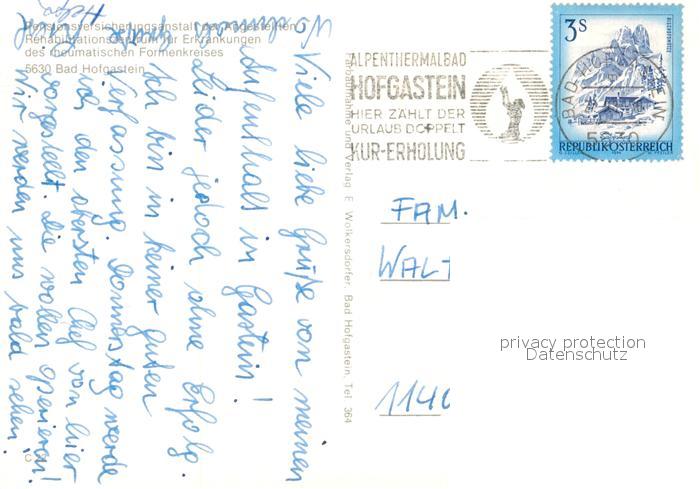 Pensionsversicherungsanstalt der Angestellten
Rehabilitationszentrum für Erkrankungen
des rheumatischen Formenkreises
5630 Bad Hofgastein
Viele liebe Grüße von meinem
Aufenthalt in Gastein!
Leider jedoch ohne Erfolg.
Ich bin in keiner guten
Verfassung. Donnerstag werde
ich den obersten Chef von hier
vorgestellt. Die wollen operieren!
Wir werden uns bald sehen!
Farbaufnahme und Verlag E. Wolkersdorfer, Bad Hofgastein, Tel. 364
ALPENTHERMALBAD
HOFGASTEIN
HIER ZÄHLT DER
URLAUB DOPPELT
KUR-ERHOLUNG
3S
REPUBLIK ÖSTERREICH
5630
FAM.
WALT
1140
privacy protection
Datenschutz